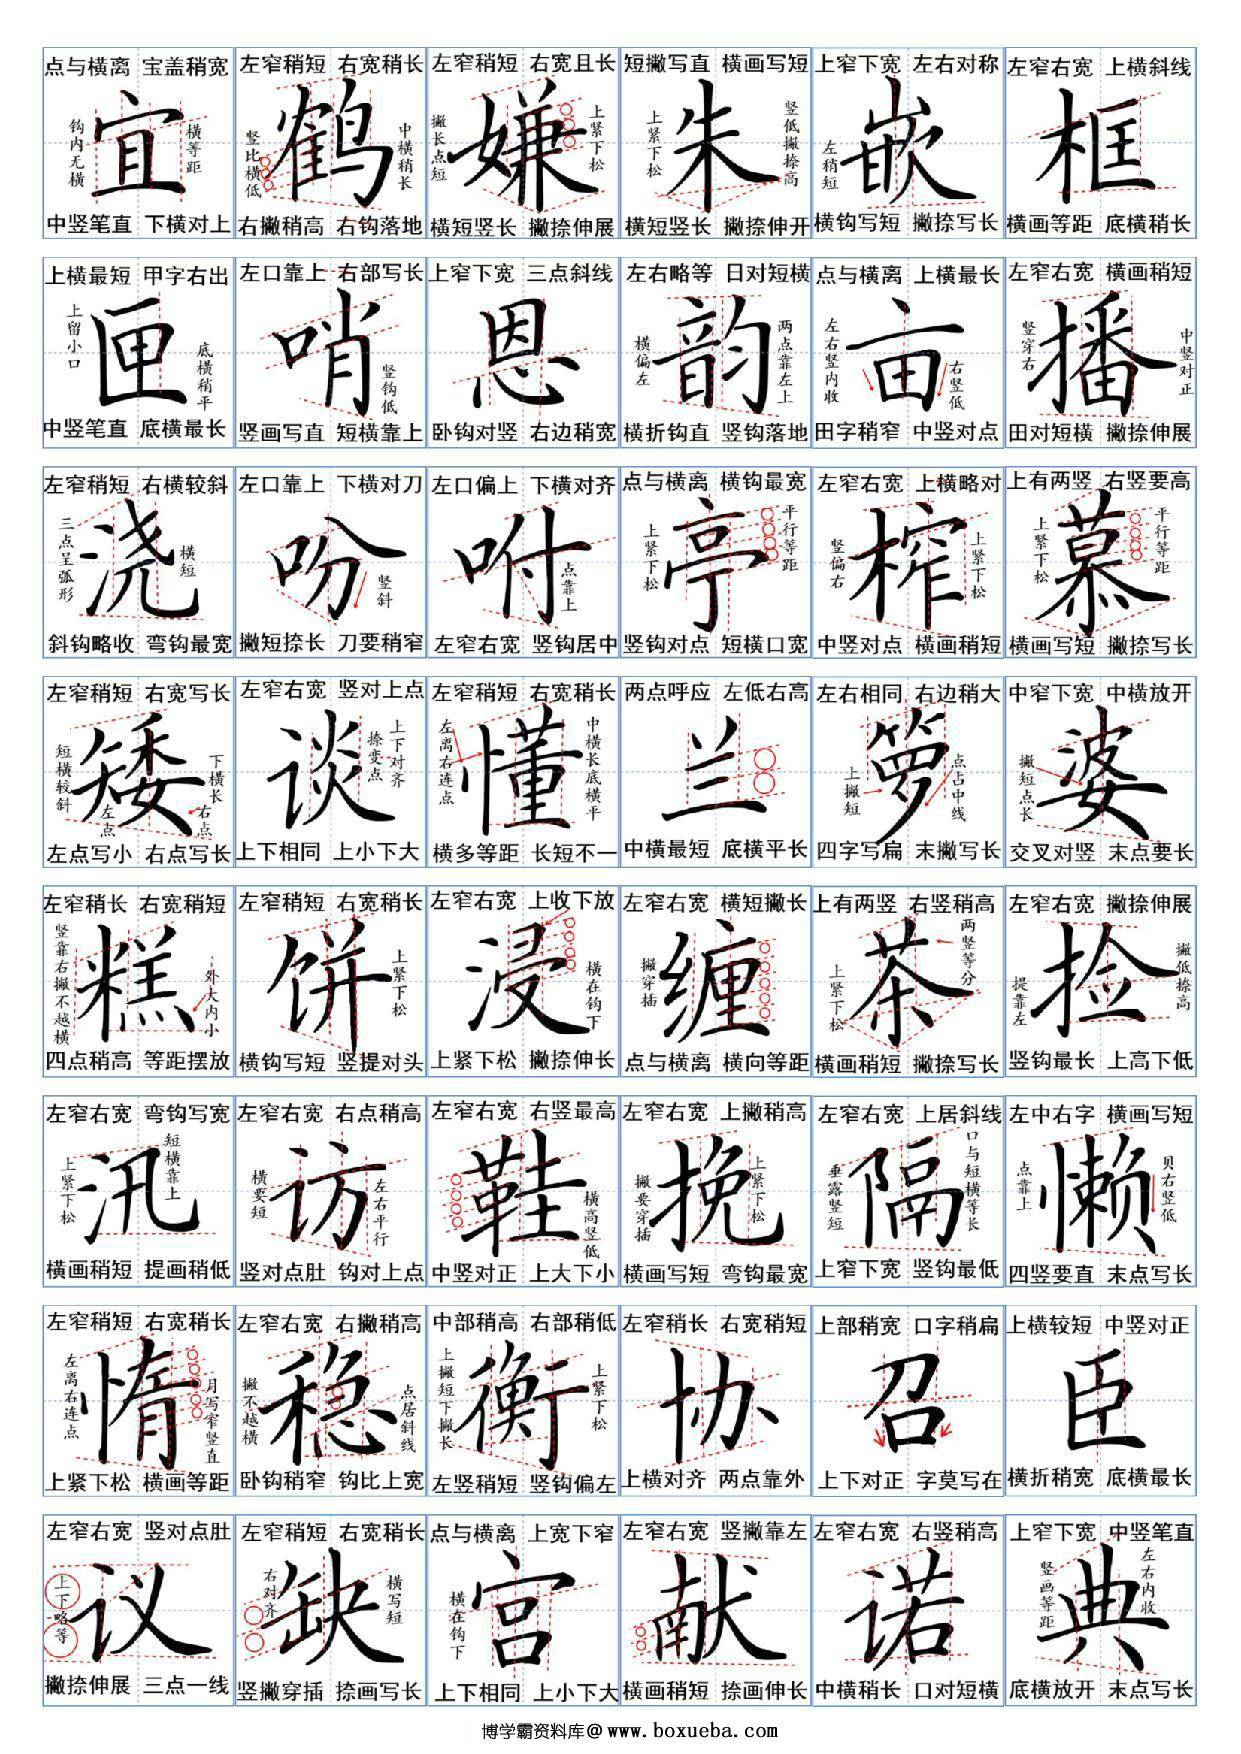 点与横离 宝盖稍宽 左窄稍短 右宽稍长 左窄稍短 右宽且长 短撇写直 横画写短 上窄下宽 左右对称 左窄右宽 上横斜线
钩内无横 宜 横等距 竖比横低 鹤 中横稍长 撇长点短 嫌 上紧下松 上紧下松 朱 竖低撇捺高 左稍短 嵌 框
中竖笔直 下横对上 右撇稍高 右钩落地 横短竖长 撇捺伸展 横短竖长 撇捺伸开 横钩写短 撇捺写长 横画等距 底横稍长
上横最短 甲字右出 左口靠上 右部写长 上窄下宽 三点斜线 左右略等 日对短横 点与横离 上横最长 左窄右宽 横画稍短
上留小口 匣 底横稍平 哨 竖钩低 恩 横偏左 韵 两点靠左上 左右竖内收 亩 右竖低 竖穿右 播 中竖对正
中竖笔直 底横最长 竖画写直 短横靠上 卧钩对竖 右边稍宽 横折钩直 竖钩落地 田字稍窄 中竖对点 田对短横 撇捺伸展
左窄稍短 右横较斜 左口靠上 下横对刀 左口偏上 下横对齐 点与横离 横钩最宽 左窄右宽 上横略对 上有两竖 右竖要高
三点呈弧形 浇 横短 吩 竖斜 咐 点靠上 上紧下松 亭 平行等距 竖偏右 榨 上紧下松 上紧下松 慕 平行等距
斜钩略收 弯钩最宽 撇短捺长 刀要稍窄 左窄右宽 竖钩居中 竖钩对点 短横口宽 中竖对点 横画稍短 横画写短 撇捺写长
左窄稍短 右宽写长 左窄右宽 竖对上点 左窄稍短 右宽稍长 两点呼应 左低右高 左右相同 右边稍大 中窄下宽 中横放开
短横较斜 矮 左点 下横长 右点 谈 捺变点 上下对齐 左离右连点 懂 中横长底横平 兰 上撇短 箩 点占中线 撇短点长 婆
左点写小 右点写长 上下相同 上小下大 横多等距 长短不一 中横最短 底横平长 四字写扁 末撇写长 交叉对竖 末点要长
左窄稍长 右宽稍短 左窄稍短 右宽稍长 左窄右宽 上收下放 左窄右宽 横短撇长 上有两竖 右竖稍高 左窄右宽 撇捺伸展
竖靠右撇不越横 糕 外大内小 饼 上紧下松 浸 横在钩下 撇穿插 缠 上紧下松 茶 两竖等分 提靠左 捡 撇低捺高
四点稍高 等距摆放 横钩写短 竖提对头 上紧下松 撇捺伸长 点与横离 横向等距 横画稍短 撇捺写长 竖钩最长 上高下低
左窄右宽 弯钩写宽 左窄右宽 右点稍高 左窄右宽 右竖最高 左窄右宽 上撇稍高 左窄右宽 上居斜线 左中右字 横画写短
上紧下松 汛 短横靠上 横要短 访 左右平行 鞋 横高竖低 撇要穿插 挽 上紧下松 垂露竖短 隔 口与短横等长 点靠上 懒 贝右竖低
横画稍短 提画稍低 竖对点肚 钩对上点 中竖对正 上大下小 横画写短 弯钩最宽 上窄下宽 竖钩最低 四竖要直 末点写长
左窄稍短 右宽稍长 左窄右宽 右撇稍高 中部稍高 右部稍低 左窄稍长 右宽稍短 上部稍宽 口字稍扁 上横较短 中竖对正
左离右连点 惰 月写窄竖直 撇不越横 稳 点居斜线 上撇短下撇长 衡 上紧下松 协 召 臣
上紧下松 横画等距 卧钩稍窄 钩比上宽 左竖稍短 竖钩偏左 上横对齐 两点靠外 上下对正 字莫写在 横折稍宽 底横最长
左窄右宽 竖对点肚 左窄稍短 右宽稍长 点与横离 上宽下窄 左窄右宽 竖撇靠左 左窄右宽 右竖稍高 上窄下宽 中竖笔直
上下略等 议 右对齐 缺 横写短 横在钩下 宫 献 诺 竖画等距 典 左右内收
撇捺伸展 三点一线 竖撇穿插 捺画写长 上下相同 上小下大 横画稍短 捺画伸长 中横稍长 口对短横 底横放开 末点写长
博学霸资料库@www.boxueba.com